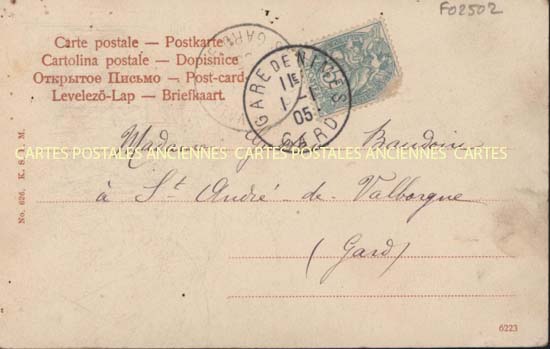 F02502
Carte postale — Postkarte
Cartolina postale — Dopisnice
Открытое Письмо — Post-card
Levelező-Lap — Briefkaart.
GARE DE NIMES
1 - 1
05
GARD
Madame Baudoin
CARTES POSTALES ANCIENNES CARTES POSTALES ANCIENNES CARTES
à St André-de-Valborgne
(Gard)
No. 626. K.
M.
6223